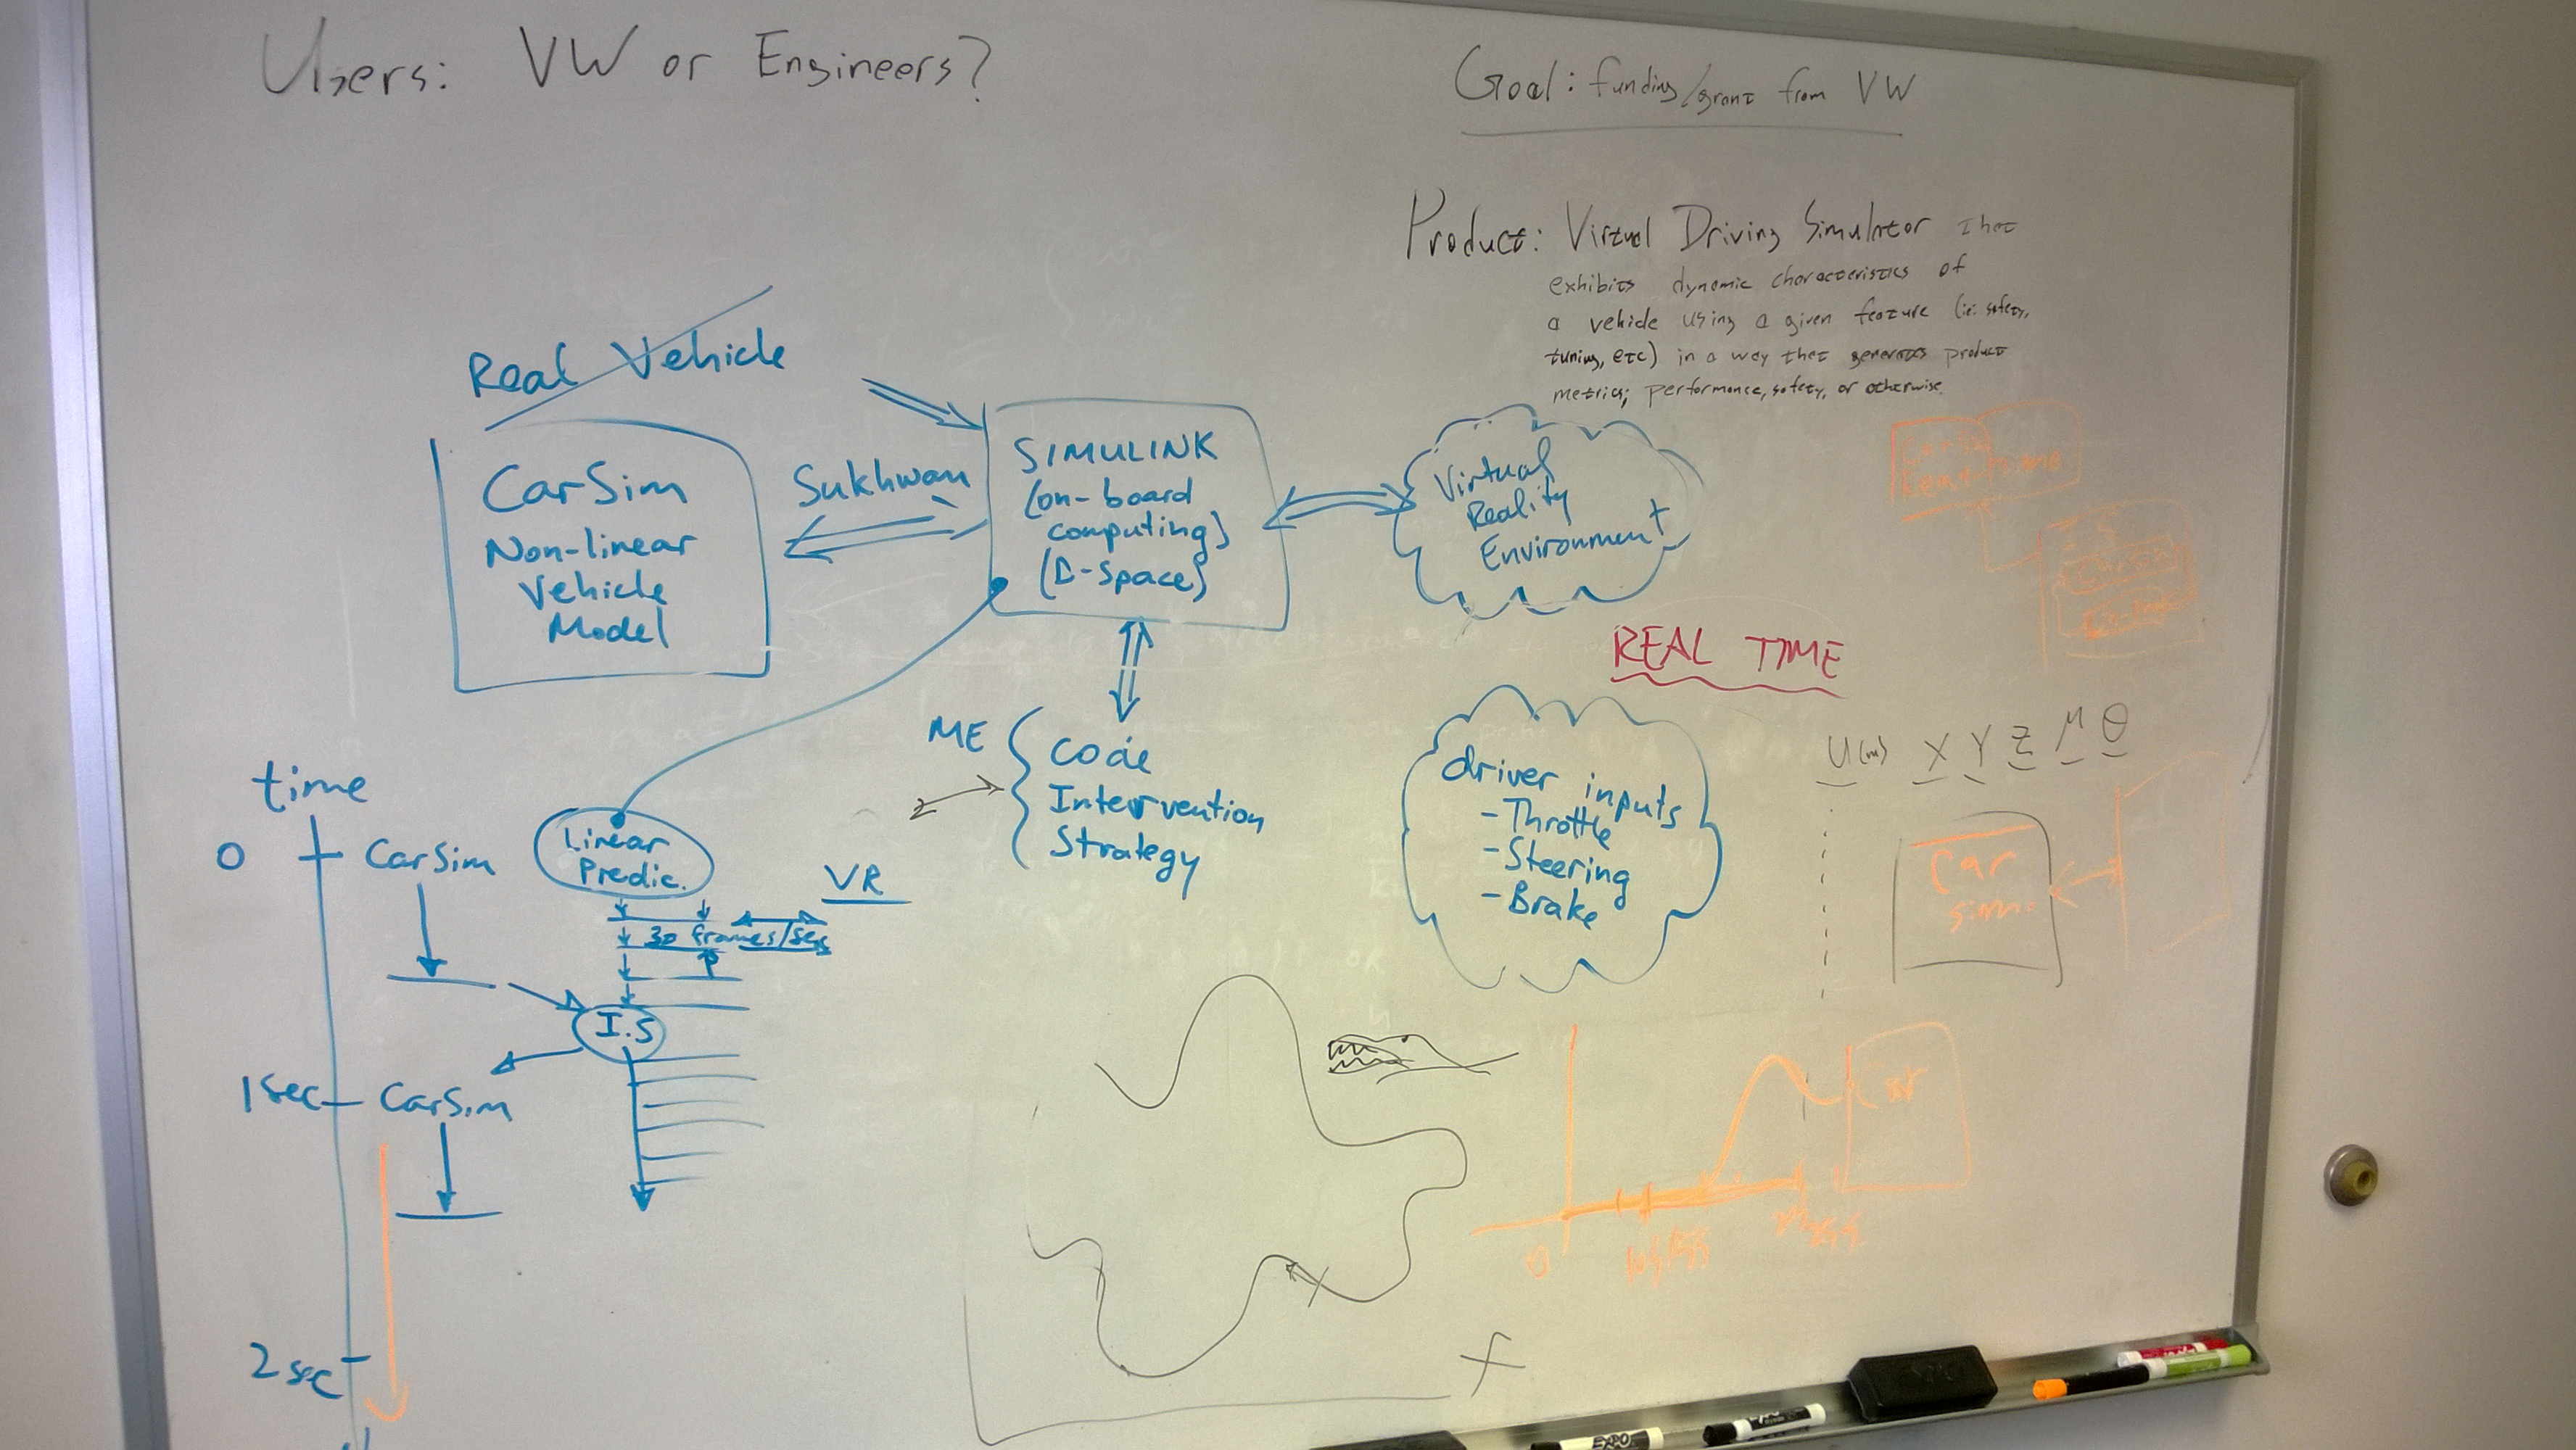 Users: VW or Engineers?
Goal: funding/grant from VW
Product: Virtual Driving Simulator that
exhibits dynamic characteristics of
a vehicle using a given feature (ie: safety,
tuning, etc) in a way that generates product
metrics; performance, safety, or otherwise.
Real Vehicle
CarSim
Non-linear
Vehicle
Model
Sukhwan
SIMULINK
(on-board
computing)
(D-space)
Virtual
Reality
Environment
REAL TIME
ME
Code
Intervention
Strategy
driver inputs
-Throttle
-Steering
-Brake
U(m) X Y Z M θ
Car
sim
time
0
CarSim
Linear
Predic.
VR
30 frames/sec
I.S
1sec
CarSim
2 sec
0
Car
EXPO